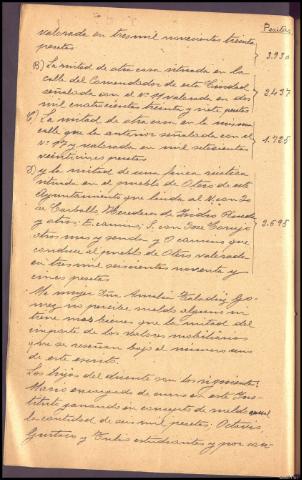 Pesetas
valorada en tres mil novecientas treinta
pesetas 3.930
B) La mitad de otra casa situada en la
calle del Comendador de esta Ciudad
señalada con el nº 11 valorada en dos 2437
mil cuatrocientas treinta y siete pesetas
C) La mitad de otra casa en la misma
calle que la anterior señalada con el
nº 17 y valorada en mil setecientas 1.725
veinticinco pesetas
D) y la mitad de una finca rustica
situada en el pueblo de Otero de este
Ayuntamiento que linda al N. con
Carballo Herederos de 2.695
y otros; E. camino; S. con José
otro mas y senda y O camino que
conduce al pueblo de Otero valorada
en tres mil seiscientas noventa y
cinco pesetas
Mi mujer Dña. Amelia Valadíg Go-
mez no percibe sueldo alguno ni
tiene mas bienes que la mitad del
importe de los valores mobiliarios
que se reseñan bajo el número uno
de este escrito.
Los hijos del dicente son los siguientes:
Mario encargado de curso en este Ins-
tituto ganando en concepto de sueldo anual
la cantidad de seis mil pesetas, Octavio,
Gustavo y Julio estudiantes y por